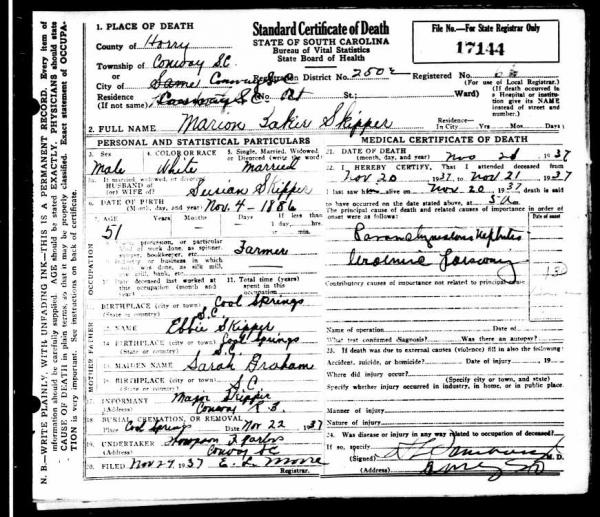 N. B.—WRITE PLAINLY, WITH UNFADING INK—THIS IS A PERMANENT RECORD. Every item of
information should be carefully supplied. AGE should be stated EXACTLY. PHYSICIANS should state
CAUSE OF DEATH in plain terms, so that it may be properly classified. Exact statement of OCCUPA-
TION is very important. See instructions on back of certificate.
1. PLACE OF DEATH
County of Horry
Township of Conway S.C.
or
City of Same
Residence
(If not same)
Standard Certificate of Death
STATE OF SOUTH CAROLINA
Bureau of Vital Statistics
State Board of Health
Registration District No. 2502
No. St.; Ward)
File No.—For State Registrar Only
17144
Registered No.
(For use of Local Registrar.)
(If death occurred in
a Hospital or institu-
tion give its NAME
instead of street and
number.)
2. FULL NAME Marion Skipper
Residence—
In City Yrs. Mos. Days
PERSONAL AND STATISTICAL PARTICULARS
3. Sex Male
4. COLOR OR RACE White
5. Single, Married, Widowed, or Divorced (write the word) Married
5a. If married, widowed, or divorced
HUSBAND of
(or) WIFE of Susian Skipper
6. DATE OF BIRTH
(Month, day, and year) Nov. 4 - 1886
7. AGE Years Months Days If less than
51
1 day, hrs.
or min.
OCCUPATION
profession, or particular
kind of work done, as spinner,
sawyer, bookkeeper, etc. Farmer
Industry or business in which
work was done, as silk mill,
saw mill, bank, etc.
10. Date deceased last worked at
this occupation (month and
year)
11. Total time (years)
spent in this
occupation
12. BIRTHPLACE (city or town) Cool Springs
(State or country) S.C.
FATHER
13. NAME Ebbie Skipper
14. BIRTHPLACE (city or town) Cool Springs
(State or country) S.C.
MOTHER
15. MAIDEN NAME Sarah Graham
16. BIRTHPLACE (city or town)
(State or country) S.C.
17. INFORMANT Major Skipper
(Address) Conway R 3.
18. BURIAL, CREMATION, OR REMOVAL
Place Cool Springs Date Nov 22, 1937
19. UNDERTAKER
(Address) Conway SC
20. FILED Nov 27, 1937 E. L. Moore
Registrar.
MEDICAL CERTIFICATE OF DEATH
21. DATE OF DEATH
(month, day, and year) Nov 21 1937
22. I HEREBY CERTIFY, That I attended deceased
from Nov 20 1937, to Nov 21, 1937
I last saw him alive on Nov. 20, 1937 death is said
to have occurred on the date stated above, at 5 a.m.
The principal cause of death and related causes of importance in order of
onset were as follows: Date of onset
Nephritis
Contributory causes of importance not related to principal cause
Name of operation Date of
What test confirmed diagnosis? Was there an autopsy?
23. If death was due to external causes (violence) fill in also the following:
Accident, suicide, or homicide? Date of injury 19
Where did injury occur?
(Specify city or town, and state)
Specify whether injury occurred in industry, in home, or in public place.
Manner of injury
Nature of injury
24. Was disease or injury in any way related to occupation of deceased?
If so, specify
(Signed) M. D.
(Address)